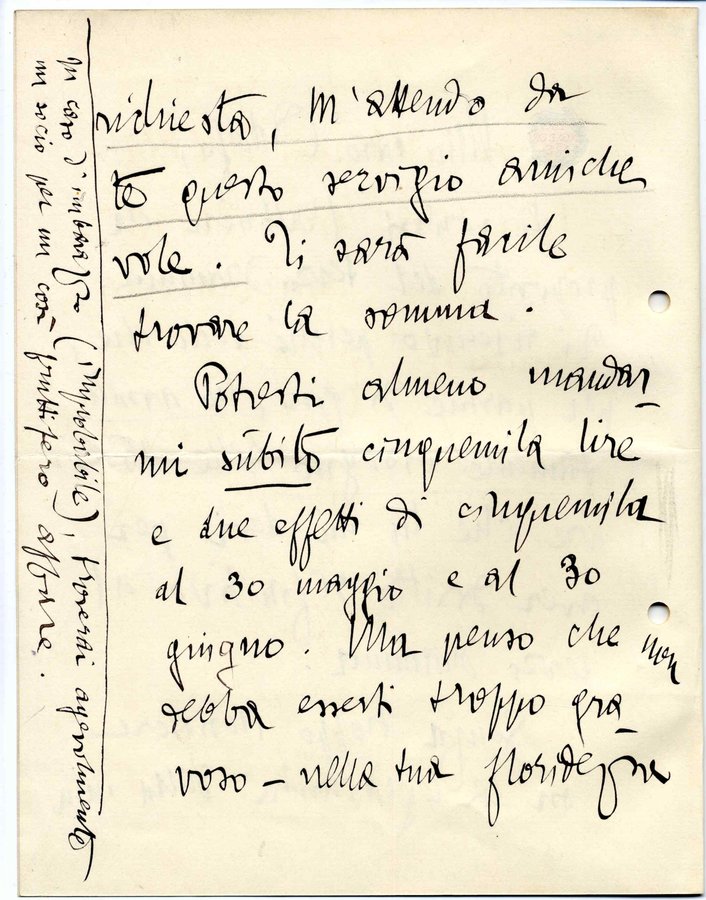 richiesta, m'attendo da
te questo servigio amiche
vole. Ti sarà facile
trovare la somma.
Potresti almeno mandar_
mi sùbito cinquemila lire
e due effetti di cinquemila
al 30 maggio e al 30
giugno. Ma penso che non
debba esserti troppo gra_
voso – nella tua floridezza
In caso d'imbarazzo (improbabile), troverai agevolmente
un socio per un così fruttifero affare.